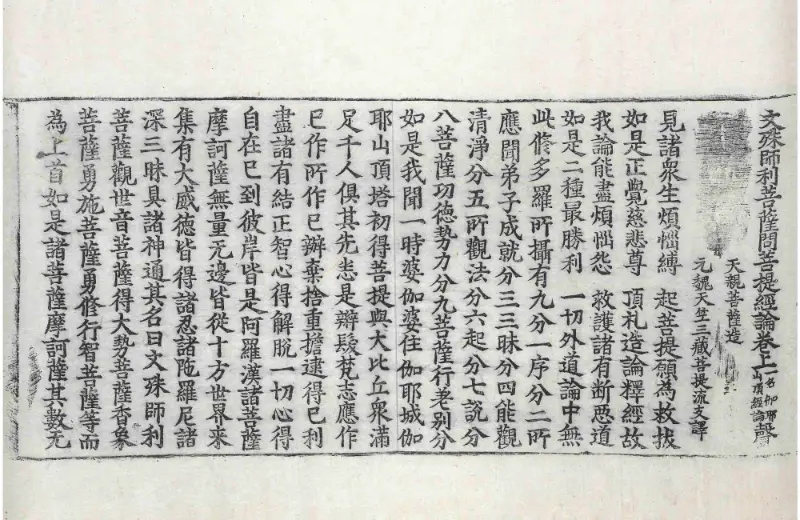 文殊師利菩薩問菩提經論卷上一名伽耶山頂經論 聲
天親菩薩造
元魏天竺三藏菩提流支譯
見諸衆生煩惱縛 起菩提願為救拔
如是正覺慈悲尊 頂礼造論釋經故
我論能盡煩惱怨 救護諸有斷惡道
如是二種最勝利 一切外道論中無
此脩多羅所攝有九分一序分二所
應聞弟子成就分三三昧分四能觀
清淨分五所觀法分六起分七說分
八菩薩功德勢力分九菩薩行差別分
如是我聞一時婆伽婆住伽耶城伽
耶山頂塔初得菩提與大比丘衆滿
足千人俱其先悉是辮髮梵志應作
已作所作已辦棄捨重擔逮得已利
盡諸有結正智心得解脫一切心得
自在已到彼岸皆是阿羅漢諸菩薩
摩訶薩無量无邊皆從十方世界來
集有大威德皆得諸忍諸陁羅尼諸
深三昧具諸神通其名曰文殊師利
菩薩觀世音菩薩得大勢菩薩香象
菩薩勇施菩薩勇修行智菩薩等而
為上首如是諸菩薩摩訶薩其數无